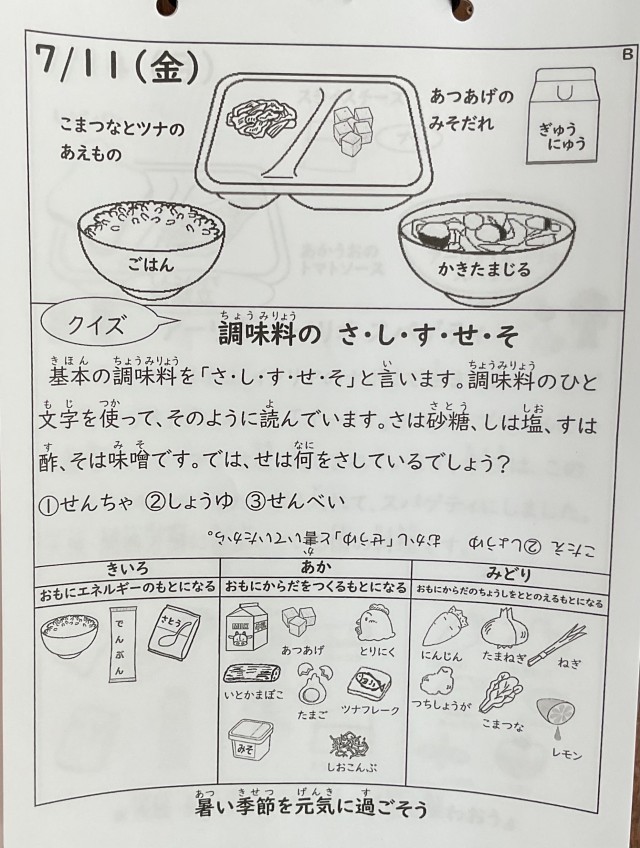 7/11(金)
B
こまつなとツナの
あえもの
あつあげの
みそだれ
ぎゅう
にゅう
ごはん
かきたまじる
クイズ
調味料の さ・し・す・せ・そ
ちょうみりょう
基本の調味料を「さ・し・す・せ・そ」と言います。調味料のひと
きほん ちょうみりょう い ちょうみりょう
文字を使って、そのように読んでいます。さは砂糖、しは塩、すは
もじ つか よ さとう しお
酢、そは味噌です。では、せは何をさしているでしょう?
す みそ なに
①せんちゃ ②しょうゆ ③せんべい
こたえ ②しょうゆ むかし「せうゆ」と書いていたから。
か
きいろ
おもにエネルギーのもとになる
でんぷん
さとう
あか
おもにからだをつくるもとになる
MILK
あつあげ
とりにく
いとかまぼこ
たまご
ツナフレーク
みそ
しおこんぶ
みどり
おもにからだのちょうしをととのえるもとになる
にんじん
たまねぎ
ねぎ
つちしょうが
こまつな
レモン
暑い季節を元気に過ごそう
あつ きせつ げんき す